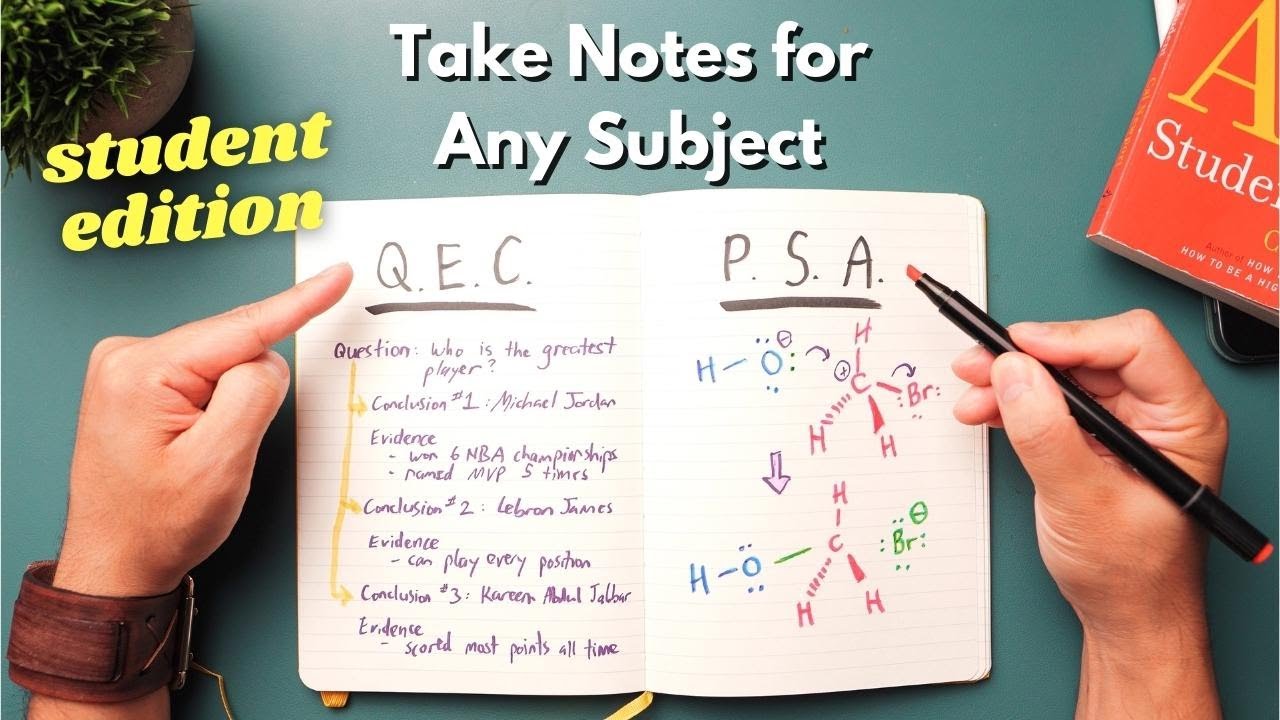 Take Notes for
Any Subject
student
edition
Q.E.C.
Question: Who is the greatest
player?
Conclusion #1: Michael Jordan
Evidence
- won 6 NBA championships
- named MVP 5 times
Conclusion #2: Lebron James
Evidence
- can play every position
Conclusion #3: Kareem Abdul Jabbar
Evidence
- scored most points all time
P. S. A.
H
H – O ⊖
⊕ C Br
H
H
H
H – O C Br ⊖
H
H
A
Stude
Author of HOW
HOW TO BE A HIG